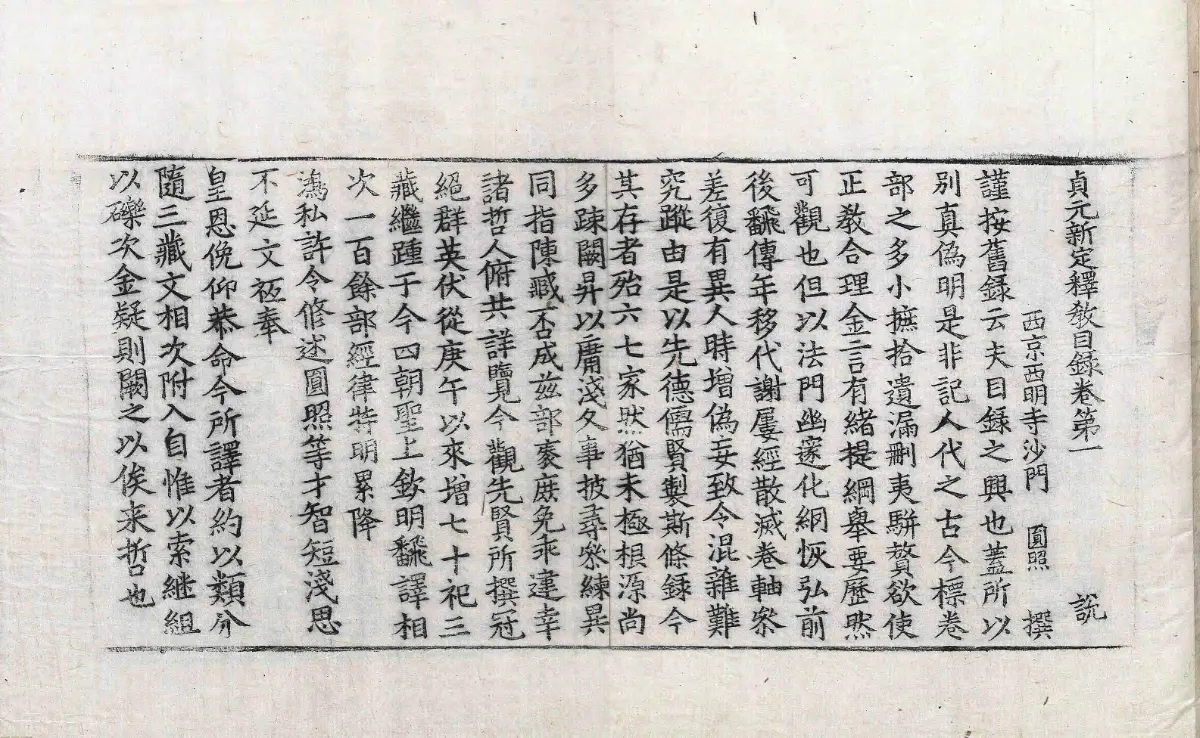 貞元新定釋教目録卷第一 說
西京西明寺沙門 圓照 撰
謹按舊録云夫目録之興也蓋所以
別真偽明是非記人代之古今標卷
部之多小摭拾遺漏刪夷駢贅欲使
正教合理金言有緒提綱舉要歷然
可觀也但以法門幽邃化網恢弘前
後飜傳年移代謝屢經散滅卷軸叅
差復有異人時增偽妄致令混雜難
究蹤由是以先德儒賢製斯條録今
其存者殆六七家然猶未極根源尚
多踈闕昇以庸淺久事披尋叅練異
同指陳臧否成兹部袠庶免乖違幸
諸哲人俯共詳覽今觀先賢所撰冠
絕群英伏從庚午以來增七十祀三
藏繼踵于今四朝聖上欽明飜譯相
次一百餘部經律特明累降
鴻私許令修述圓照等才智短淺思
不延文祗奉
皇恩俛仰恭命今所譯者約以類分
隨三藏文相次附入自惟以索继組
以礫次金疑則闕之以俟来哲也